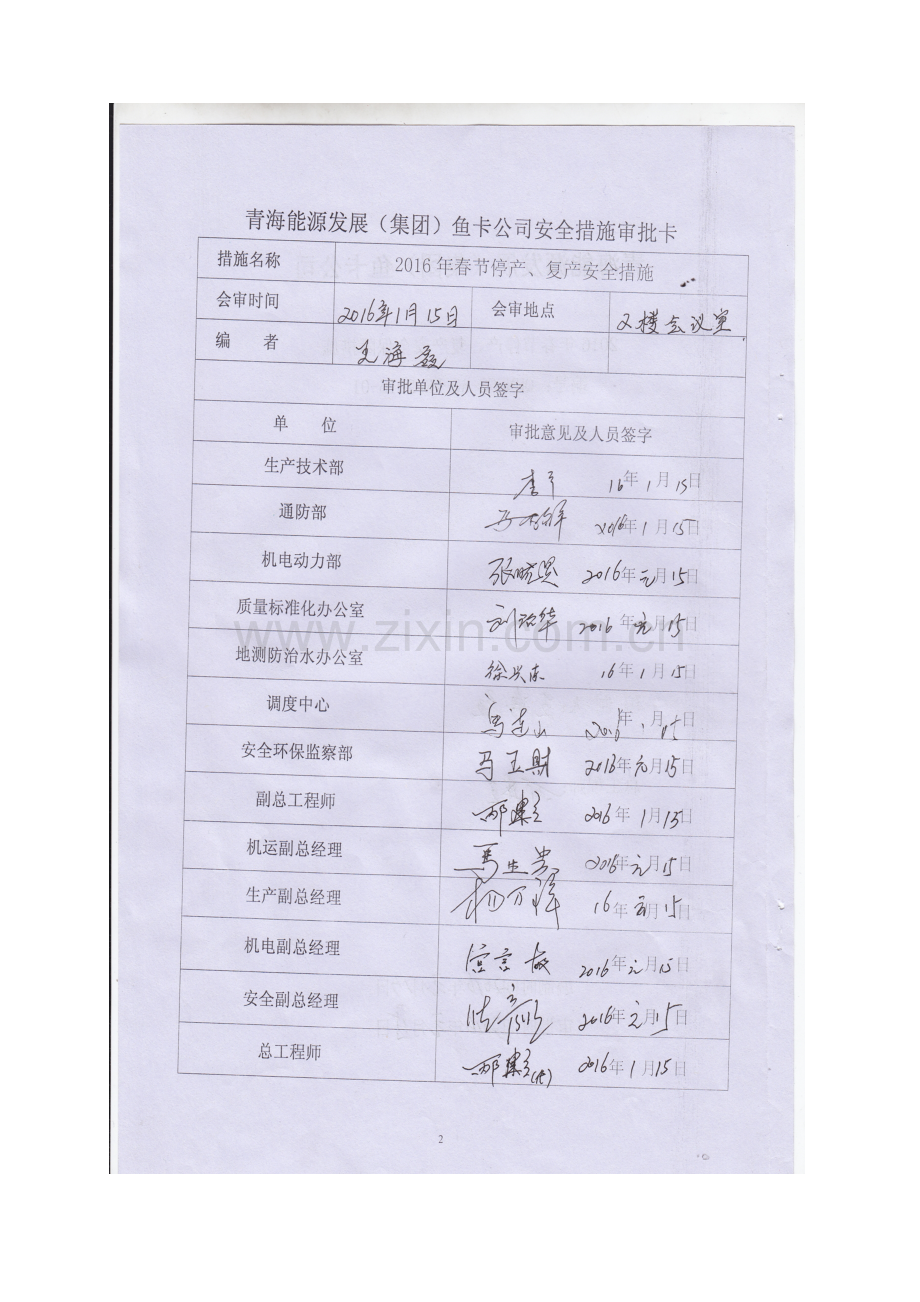 青海能源发展（集团）鱼卡公司安全措施审批卡
措施名称 2016 年春节停产、复产安全措施
会审时间 2016年1月15日 会审地点 2楼会议室
编 者 王海
审批单位及人员签字
单 位 审批意见及人员签字
生产技术部 李 16年1月15日
通防部 2016年1月15日
机电动力部 张晓 2016年元月15日
质量标准化办公室 刘 华 2016年元月15日
www.zixin.com.cn
地测防治水办公室 徐兴东 16年1月15日
调度中心 马连山 2016年1月15日
安全环保监察部 马玉财 2016年元月15日
副总工程师 2016年1月15日
机运副总经理 马生贵 2016年元月15日
生产副总经理 杨万祥 16年元月15日
机电副总经理 2016年元月15日
安全副总经理 2016年元月15日
总工程师 2016年1月15日
2